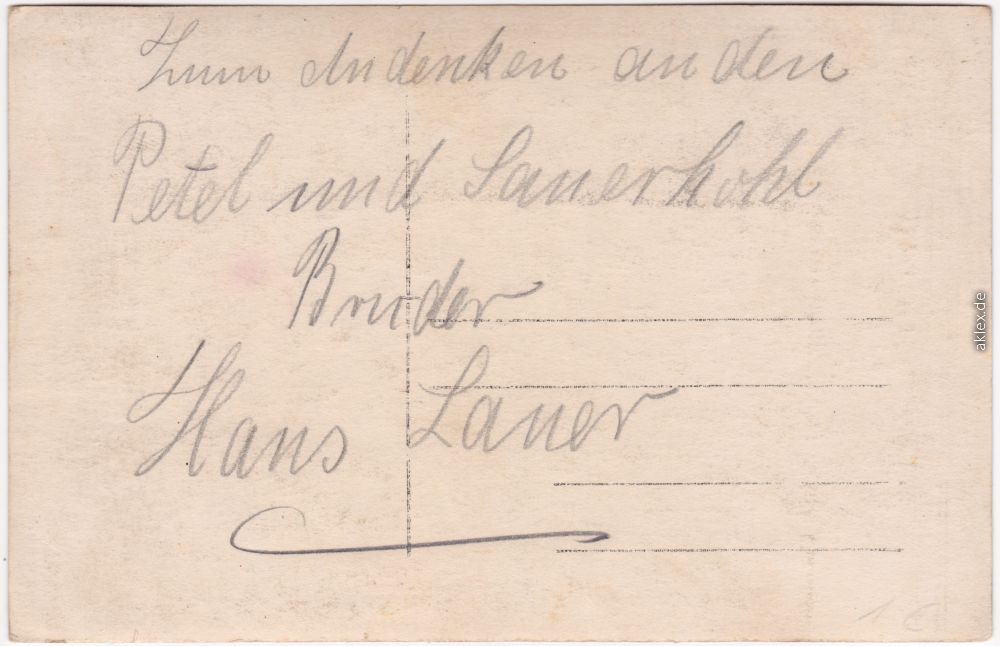 Zum Andenken an den
Petel und Sauerkohl
Bruder
Hans Lauer
1 €
aklex.de